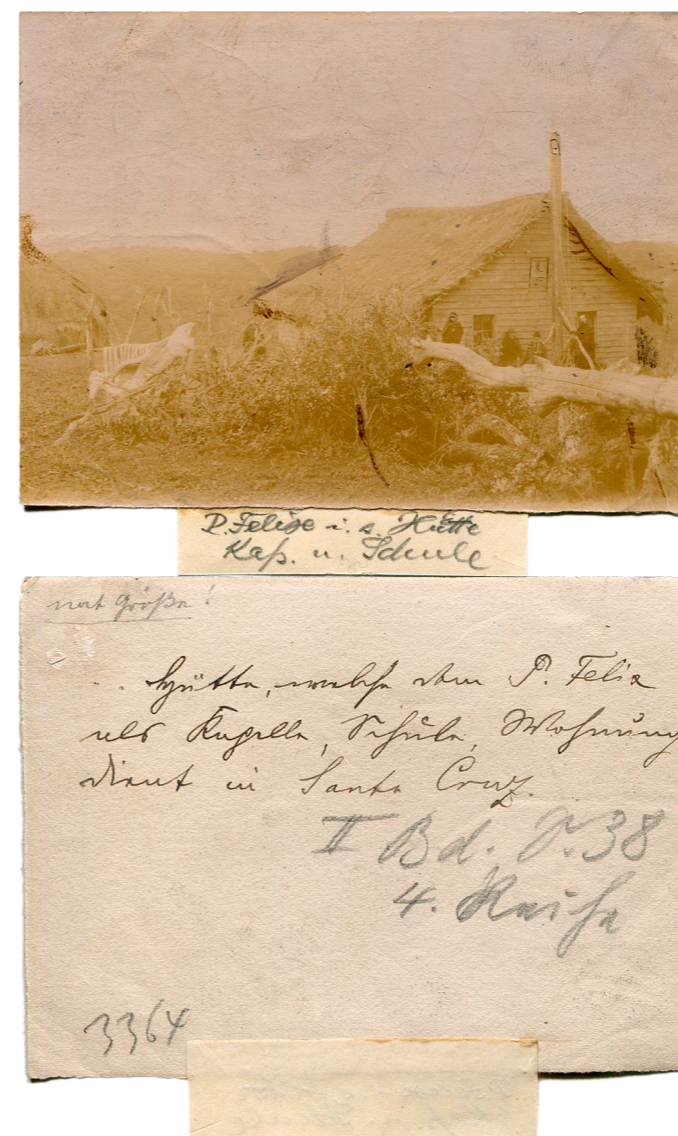 P. Felixe i. s. Hütte
Kap. u. Schule
nat Größe!
Hütte, welche dem P. Felix
als Kapelle, Schule, Wohnung
dient in Santa Cruz.
II Bd. S. 38
4. Reihe
3364